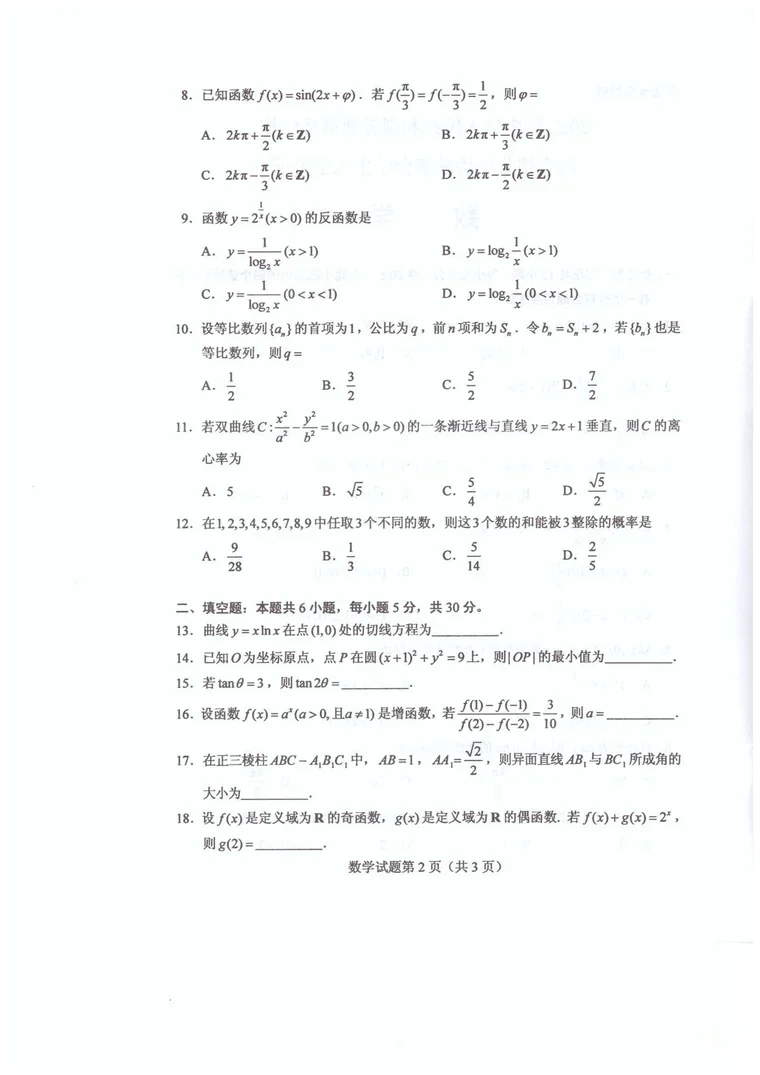 8．已知函数 f(x)=sin(2x+φ)．若 f(π/3)=f(-π/3)=1/2，则φ=
A．2kπ+π/2(k∈Z)　B．2kπ+π/3(k∈Z)
C．2kπ-π/3(k∈Z)　D．2kπ-π/2(k∈Z)
9．函数 y=2^(1/x)(x>0) 的反函数是
A．y=1/log₂x(x>1)　B．y=log₂ 1/x(x>1)
C．y=1/log₂x(0<x<1)　D．y=log₂ 1/x(0<x<1)
10．设等比数列{aₙ}的首项为1，公比为q，前n项和为Sₙ．令bₙ=Sₙ+2，若{bₙ}也是
等比数列，则q=
A．1/2　B．3/2　C．5/2　D．7/2
11．若双曲线C:x²/a²-y²/b²=1(a>0,b>0)的一条渐近线与直线y=2x+1垂直，则C的离
心率为
A．5　B．√5　C．5/4　D．√5/2
12．在1,2,3,4,5,6,7,8,9中任取3个不同的数，则这3个数的和能被3整除的概率是
A．9/28　B．1/3　C．5/14　D．2/5
二、填空题：本题共6小题，每小题5分，共30分。
13．曲线y=xlnx在点(1,0)处的切线方程为________．
14．已知O为坐标原点，点P在圆(x+1)²+y²=9上，则|OP|的最小值为________．
15．若tanθ=3，则tan2θ=________．
16．设函数f(x)=aˣ(a>0,且a≠1)是增函数，若(f(1)-f(-1))/(f(2)-f(-2))=3/10，则a=________．
17．在正三棱柱ABC-A₁B₁C₁中，AB=1，AA₁=√2/2，则异面直线AB₁与BC₁所成角的
大小为________．
18．设f(x)是定义域为R的奇函数，g(x)是定义域为R的偶函数.若f(x)+g(x)=2ˣ，
则g(2)=________．
数学试题第2页（共3页）